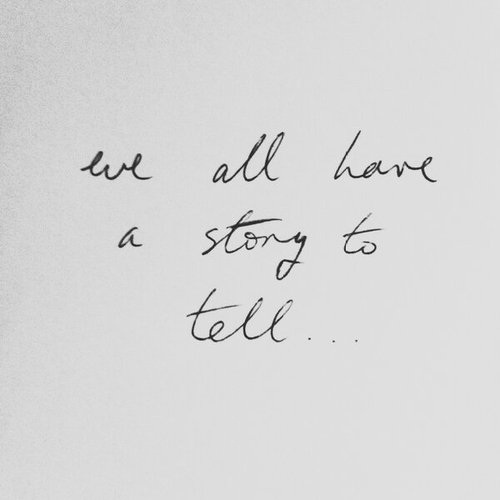 we all have
a story to
tell...